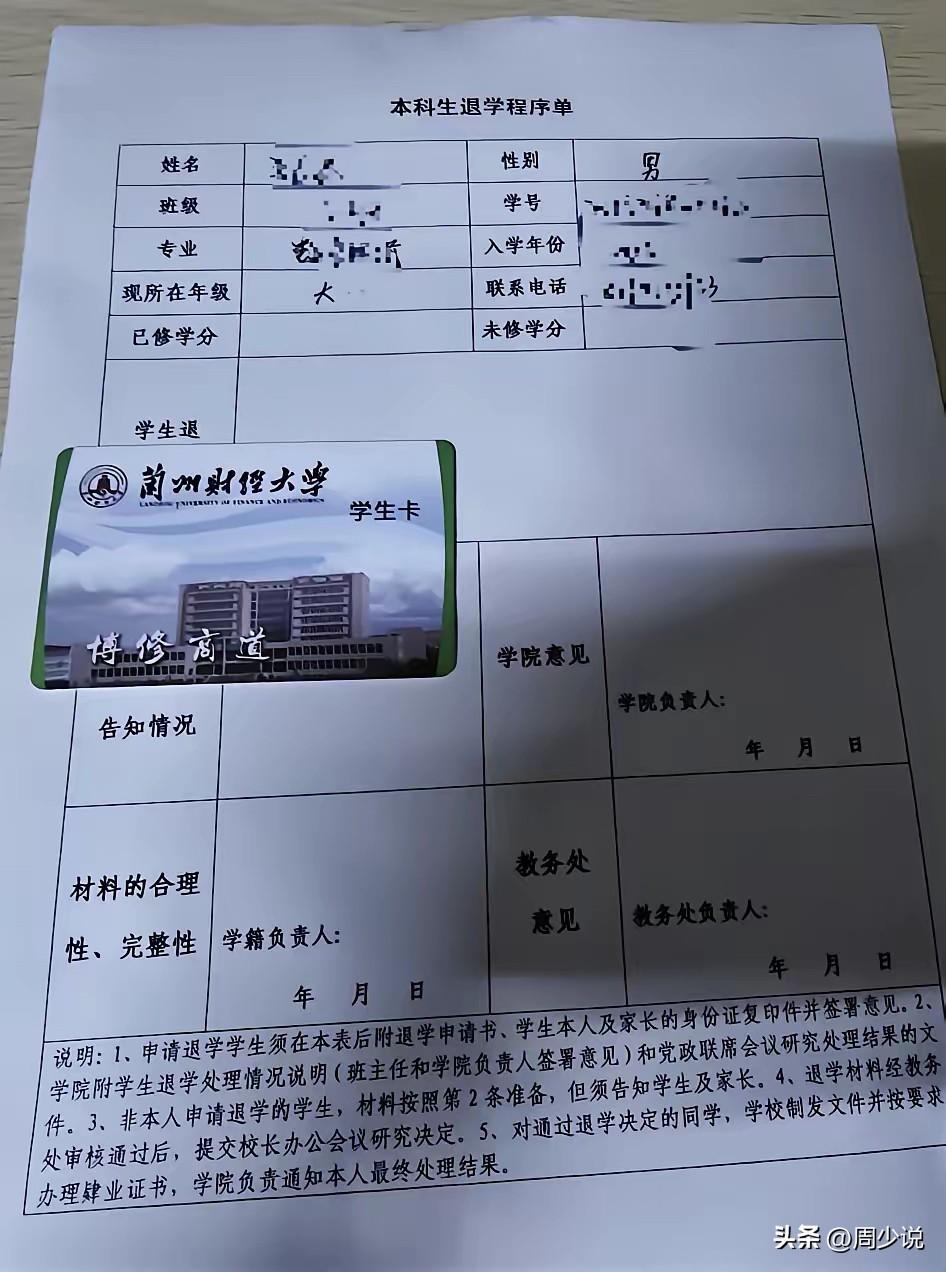 本科生退学程序单
姓名
性别 男
班级
学号
专业
入学年份
现所在年级 大
联系电话
已修学分
未修学分
学生退
兰州财经大学
LANZHOU UNIVERSITY OF FINANCE AND ECONOMICS
学生卡
博修商道
告知情况
学院意见
学院负责人:
年 月 日
材料的合理
性、完整性
学籍负责人:
年 月 日
教务处
意见
教务处负责人:
年 月 日
说明: 1、申请退学学生须在本表后附退学申请书、学生本人及家长的身份证复印件并签署意见。2、
学院附学生退学处理情况说明(班主任和学院负责人签署意见)和党政联席会议研究处理结果的文
件。3、非本人申请退学的学生,材料按照第2条准备,但须告知学生及家长。4、退学材料经教务
处审核通过后,提交校长办公会议研究决定。5、对通过退学决定的同学,学校制发文件并按要求
办理肄业证书,学院负责通知本人最终处理结果。
头条 @周少说